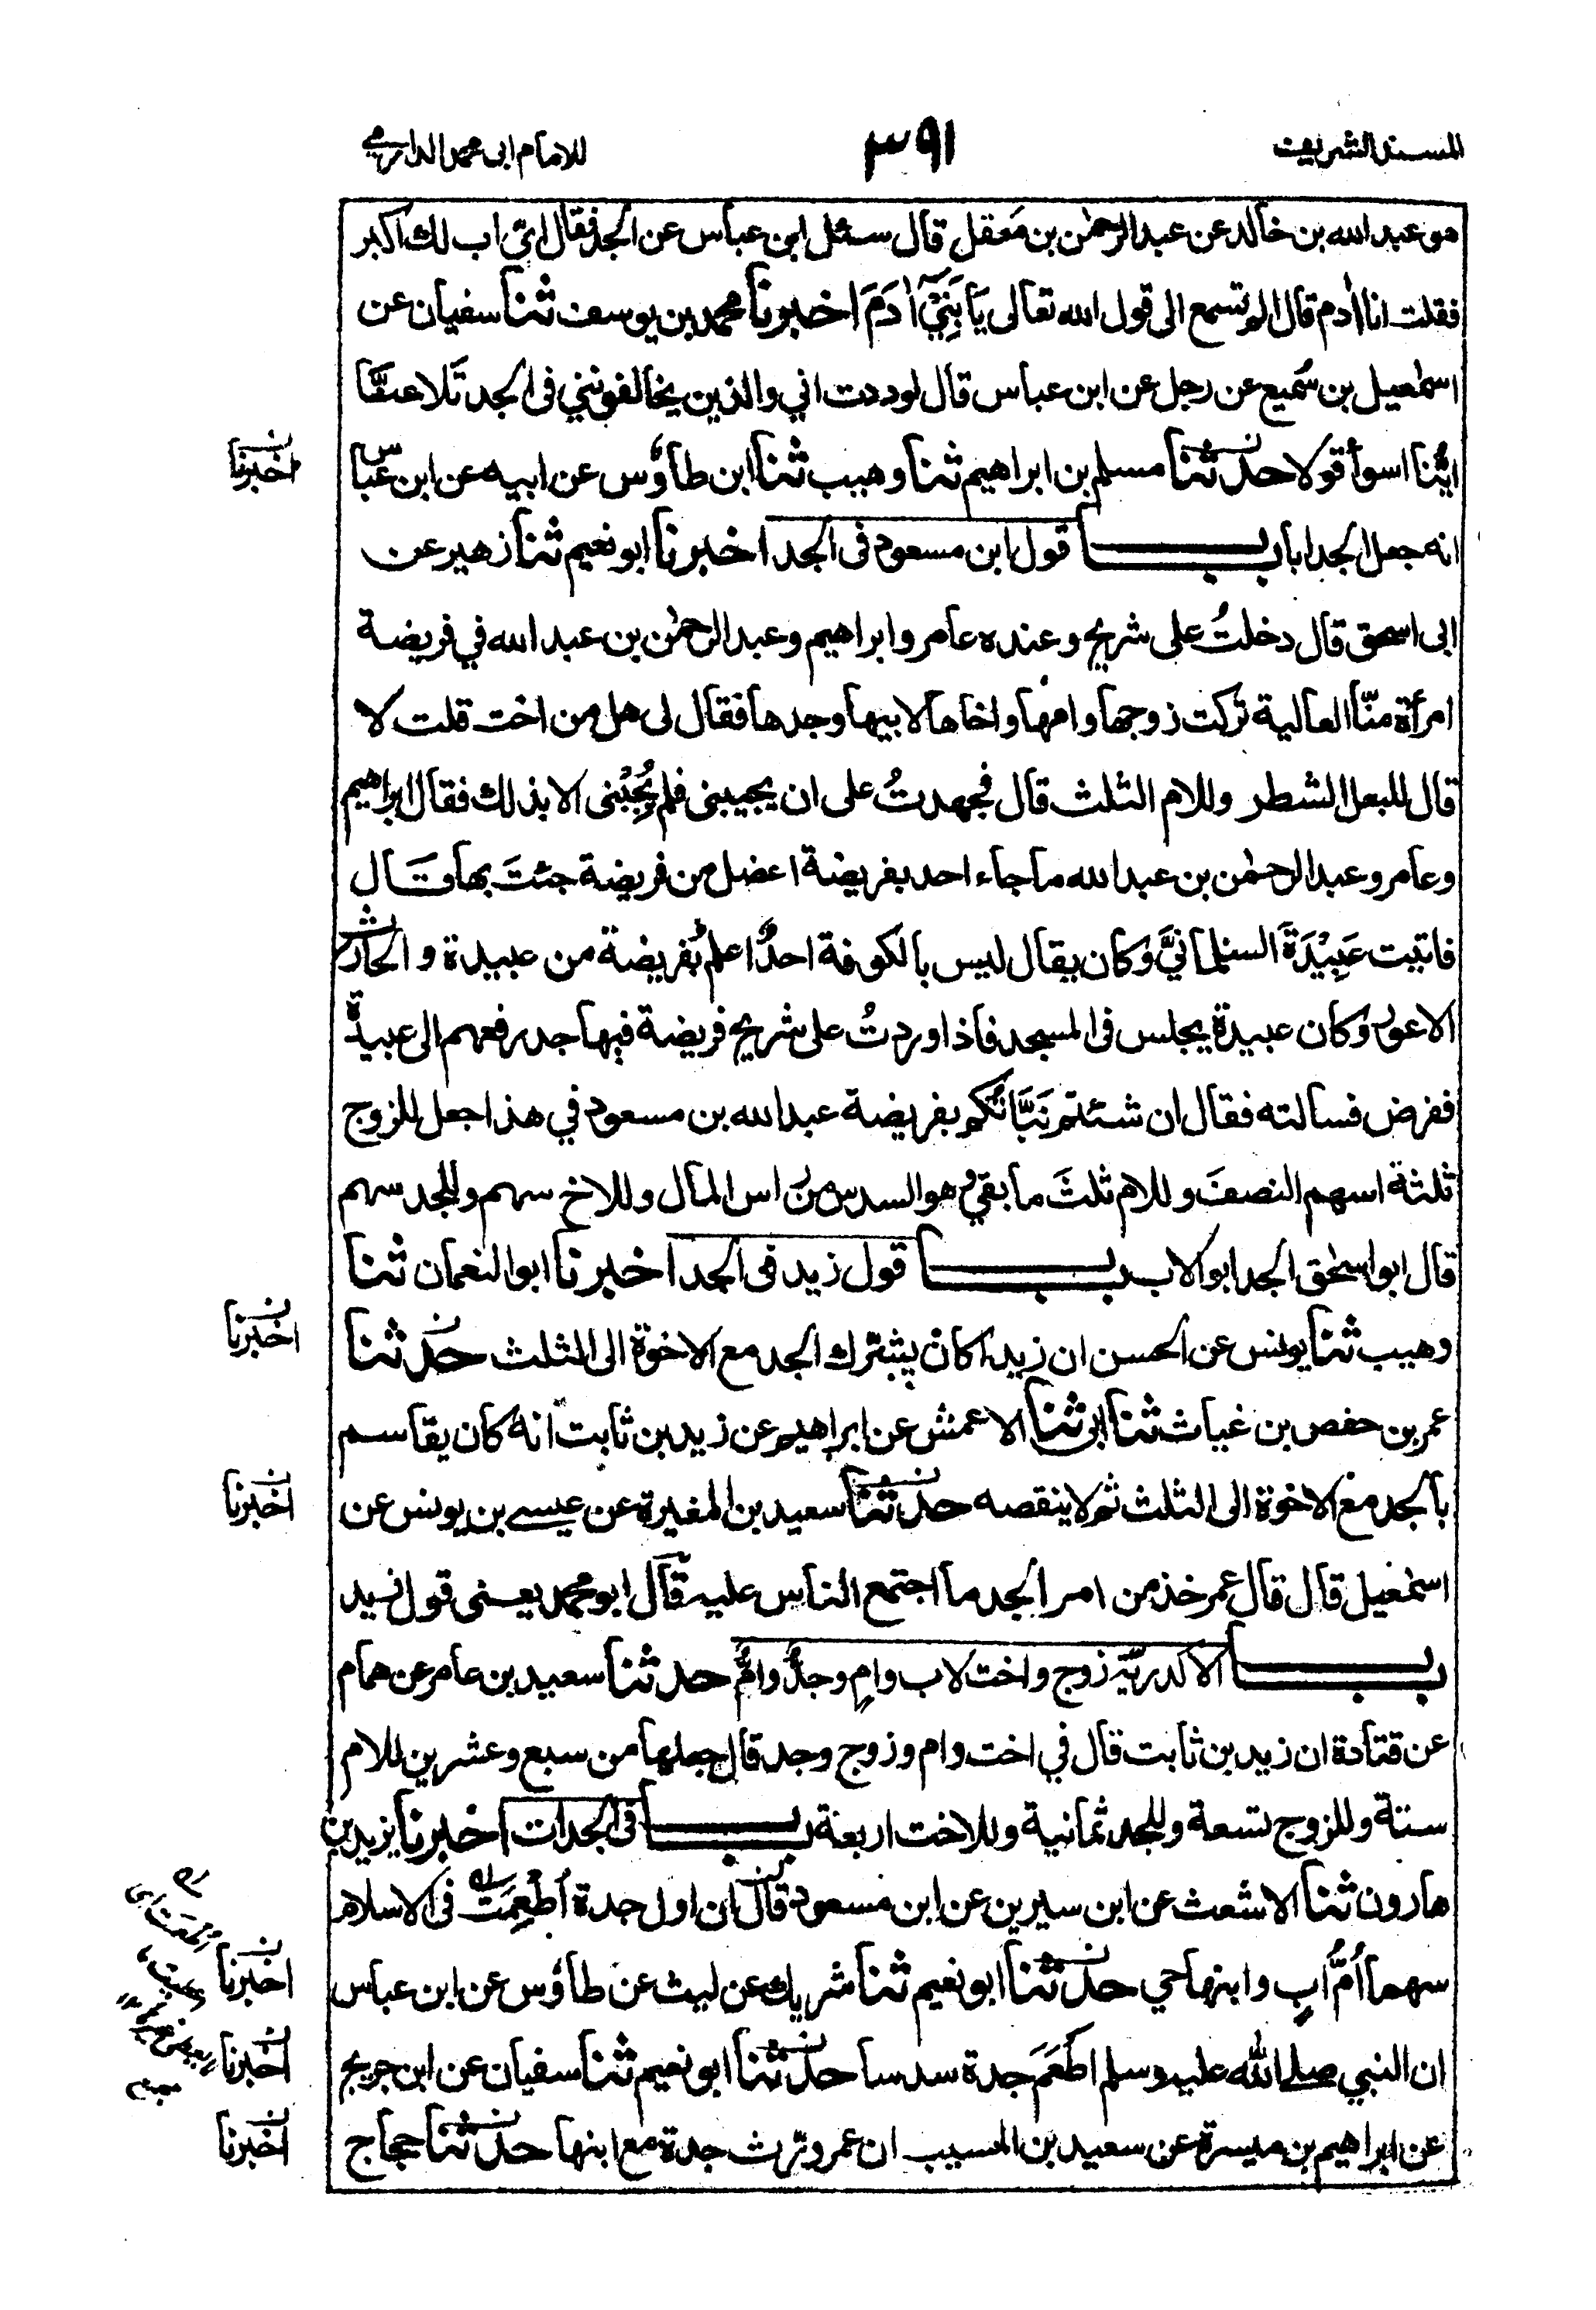 المسند الشريف
٣٩١
للامام ابى محمد الدارمي
هو عبد الله بن خالد عن عبد الرحمٰن بن مَعقل قال سئل ابن عباس عن الجد فقال ايّ اب لك اكبر
فقلت انا اٰدم قال الم تسمع الى قول الله تعالى يَا بَنِيْٓ اٰدَمَ اخبرنا محمد بن يوسف ثنا سفيان عن
اسمٰعيل بن سُميع عن رجل عن ابن عباس قال لوددت اني والذين يخالفونني فى الجد تَلاعنّا
ايُّنا اسوأ قولا حدثنا مسلم بن ابراهيم ثنا وهيب ثنا ابن طاؤس عن ابيه عن ابن عباس
اخبرنا
انه جعل الجد ابا باب قول ابن مسعود فى الجد اخبرنا ابو نعيم ثنا زهير عن
ابى اسحق قال دخلتُ على شريح وعنده عامر وابراهيم وعبد الرحمٰن بن عبد الله في فريضة
امرأة منّا العالية تركت زوجها وامّها واخاها لابيها وجدها فقال لى هل من اخت قلت لا
قال للبعل الشطر وللام الثلث قال فجهدتُ على ان يجيبنى فلم يُجِبْنى الا بذلك فقال ابراهيم
وعامر وعبد الرحمٰن بن عبد الله ما جاء احد بفريضة اعضل من فريضة جئتَ بها قال
فاتيت عَبِيْدَةَ السلمانيَّ وكان يقال ليس بالكوفة احدٌ اعلم بفريضة من عبيدة والحارث
الاعور وكان عبيدة يجلس فى المسجد فاذا وردتُ على شريح فريضة فيها جد رفعهم الى عبيدة
ففرض فسالته فقال ان شئتم نَبَّأتُكم بفريضة عبد الله بن مسعود في هذا جعل للزوج
ثلثة اسهم النصفَ وللام ثلثَ ما بقي وهو السدس من راس المال وللاخ سهم وللجد سهم
قال ابو اسحٰق الجد ابو الاب باب قول زيد فى الجد اخبرنا ابو النعمان ثنا
وهيب ثنا يونس عن الحسن ان زيدا كان يشترك الجد مع الاخوة الى الثلث حدثنا
اخبرنا
عمر بن حفص بن غياث ثنا ابى ثنا الاعمش عن ابراهيم عن زيد بن ثابت انه كان يقاسم
بالجد مع الاخوة الى الثلث ثم لا ينقصه حدثنا سعيد بن المغيرة عن عيسى بن يونس عن
اخبرنا
اسمٰعيل قال قال عمر خذ من امر الجد ما اجتمع الناس عليه قال ابو محمد يعنى قول زيد
باب الاكدريّة زوج واخت لاب وام وجدٌ وامٌّ حدثنا سعيد بن عامر عن همام
عن قتادة ان زيد بن ثابت قال في اخت وام وزوج وجد قال جعلها من سبع وعشرين للام
ستة وللزوج تسعة وللجد ثمانية وللاخت اربعة باب فى الجدات اخبرنا يزيد بن
هارون ثنا الاشعث عن ابن سيرين عن ابن مسعود قال ان اول جدة اُطْعِمَتْ فى الاسلام
سهما اُمُّ ابٍ وابنها حي حدثنا ابو نعيم ثنا شريك عن ليث عن طاؤس عن ابن عباس
اخبرنا
ان النبي صلى الله عليه وسلم اَطْعَمَ جدة سدسا حدثنا ابو نعيم ثنا سفيان عن ابن جريج
اخبرنا
عن ابراهيم بن ميسرة عن سعيد بن المسيب ان عمر ورّث جدة مع ابنها حدثنا حجاج
اخبرنا